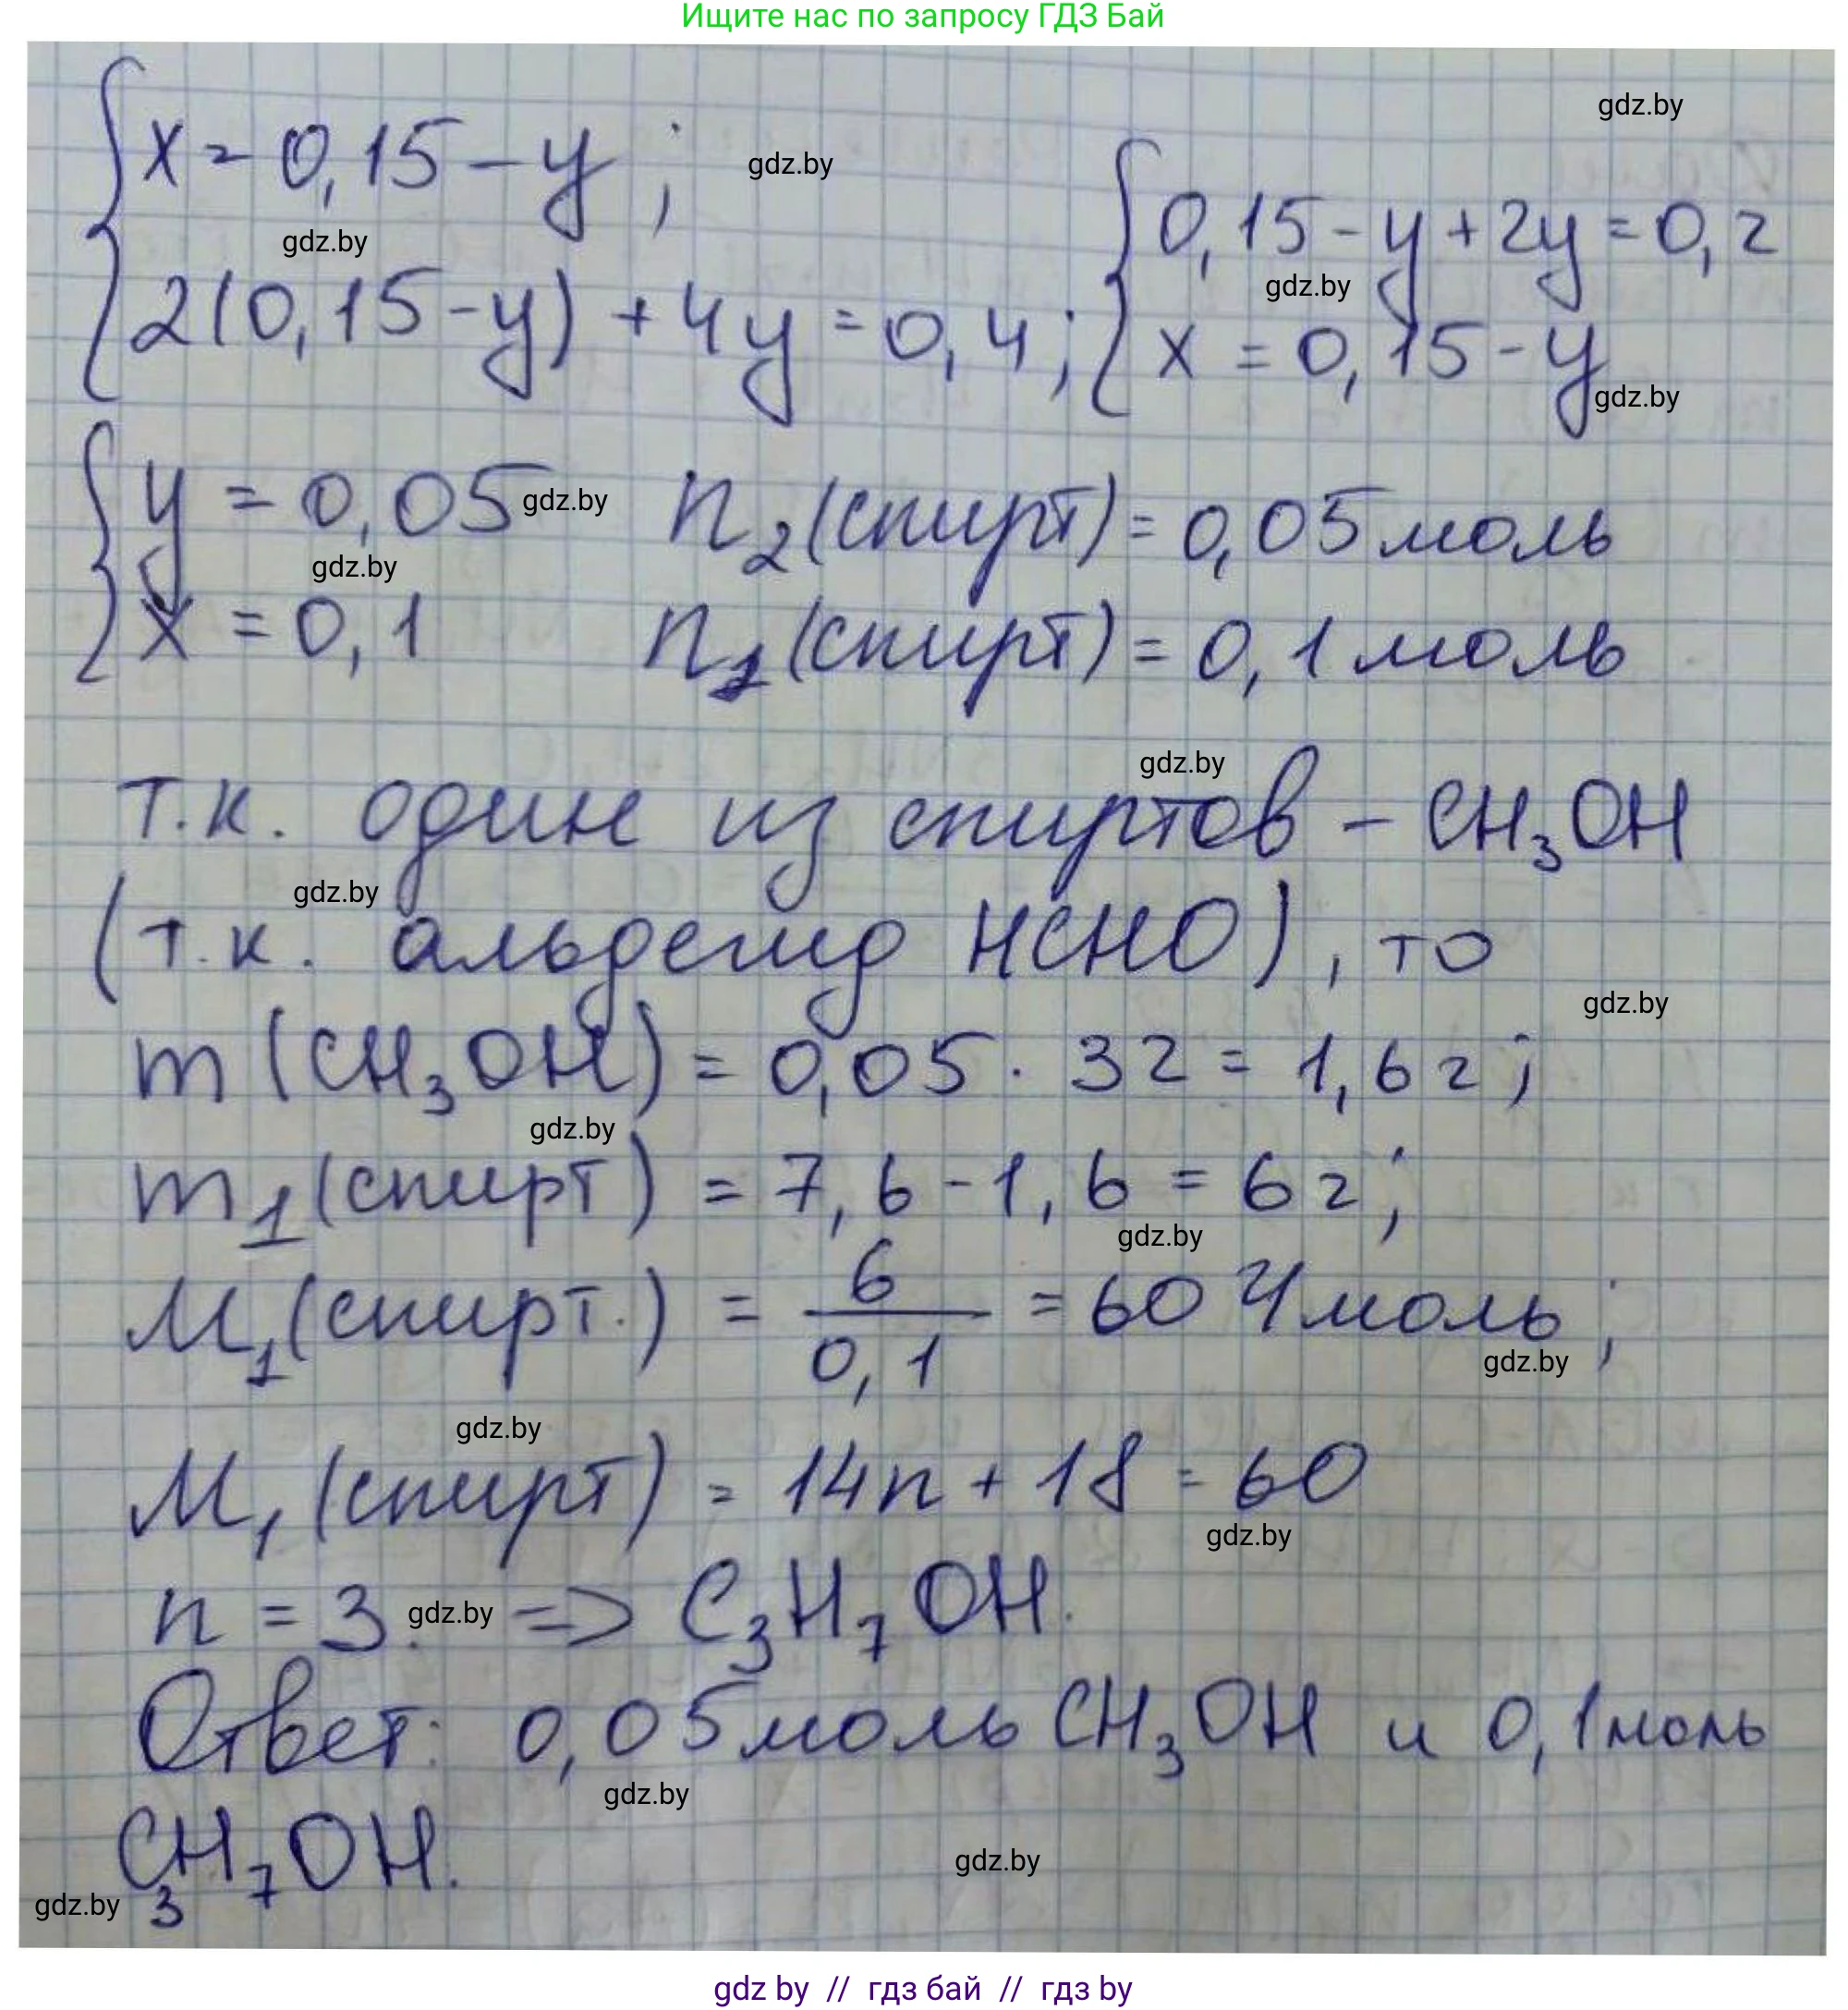 Ищите нас по запросу ГДЗ Бай
gdz.by
x = 0,15 - y ;
gdz.by
gdz.by
2(0,15 - y) + 4y = 0,4 ;
0,15 - y + 2y = 0,2
gdz.by
x = 0,15 - y
gdz.by
y = 0,05
gdz.by
n₂(спирт) = 0,05 моль
gdz.by
x = 0,1
n₁(спирт) = 0,1 моль
gdz.by
т.к. один из спиртов - CH₃OH
gdz.by
(т.к. альдегид HCHO), то
gdz.by
m(CH₃OH) = 0,05 · 32 = 1,6 г ;
gdz.by
m₁(спирт) = 7,6 - 1,6 = 6 г ;
gdz.by
M₁(спирт.) = 6/0,1 = 60 г/моль ;
gdz.by
gdz.by
M₁(спирт) = 14n + 18 = 60
gdz.by
n = 3. => C₃H₇OH.
gdz.by
Ответ: 0,05 моль CH₃OH и 0,1 моль
gdz.by
C₃H₇OH.
gdz.by
gdz.by
gdz by // гдз бай // гдз by